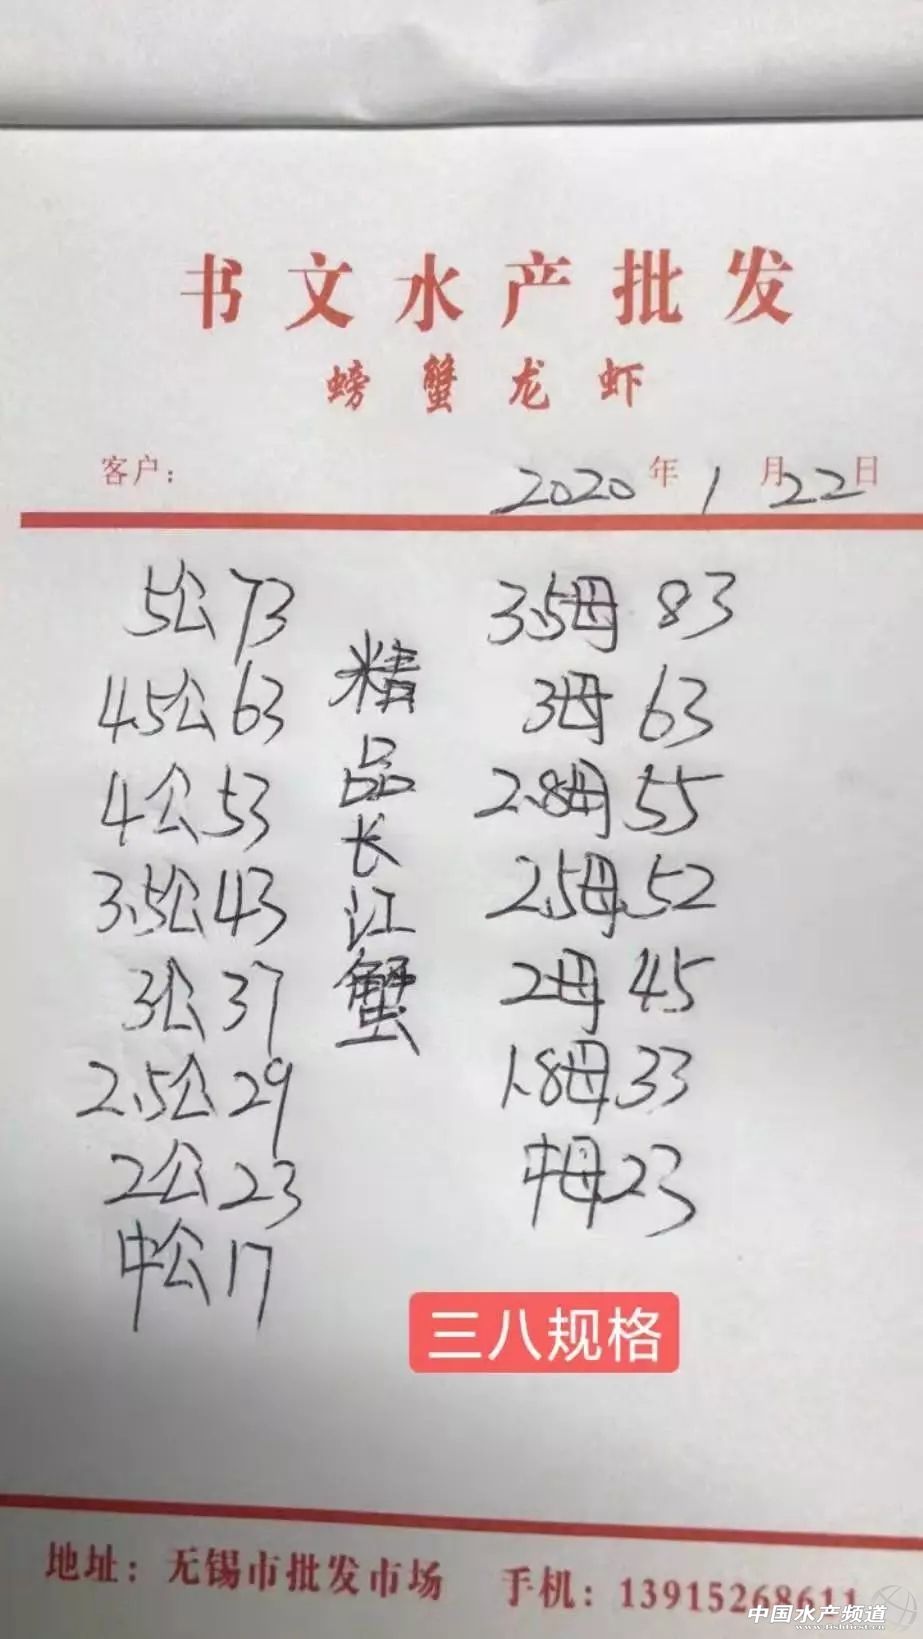 书文水产批发
螃蟹龙虾
客户：
2020年1月22日
5公73
4.5公63
4公53
3.5公43
3公37
2.5公29
2公23
中公17
精品长江蟹
3.5母 83
3母 63
2.8母 55
2.5母 52
2母 45
1.8母 33
中母 23
三八规格
地址：无锡市批发市场 手机：13915268611
中国水产频道
www.fishfirst.cn